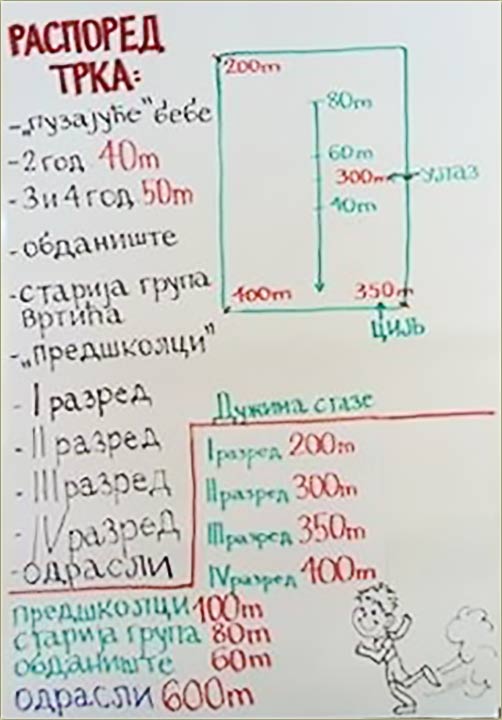 РАСПОРЕД
ТРКА:
-„пузајуће” бебе
-2 год 40m
-3 и 4 год 50m
-обданиште
-старија група
Вртића
-„предшколци”
-I разред
-II разред
-III разред
-IV разред
-одрасли
200m
80m
60m
300m
УЛАЗ
40m
400m
350m
ЦИЉ
Дужина стазе
I разред 200m
II разред 300m
III разред 350m
IV разред 400m
предшколци 100m
старија група 80m
обданиште 60m
одрасли 600m